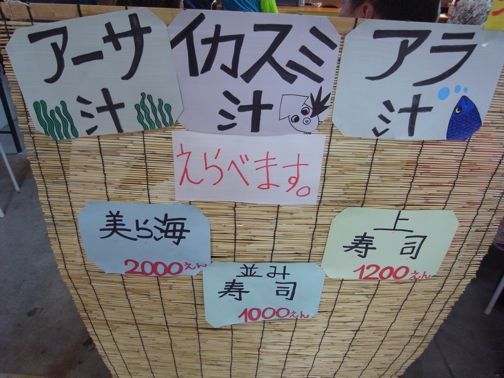 アーサ
汁
イカスミ
汁
アラ
汁
えらべます。
美ら海
2000えん
並み
寿司
1000えん
上
寿司
1200えん